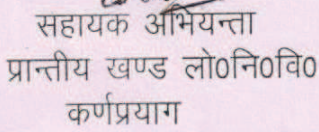 सहायक अभियन्ता
प्रान्तीय खण्ड लो0नि0वि0
कर्णप्रयाग